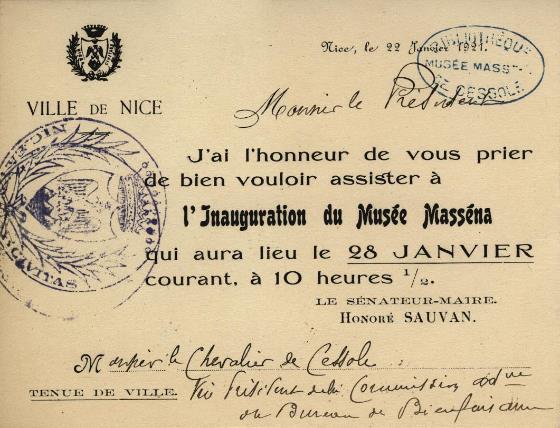 Nice, le 22 Janvier 1921.
BIBLIOTHÈQUE
MUSÉE MASS
DE CESSOLE
VILLE DE NICE
Monsieur le Président
J'ai l'honneur de vous prier
de bien vouloir assister à
l'Inauguration du Musée Masséna
qui aura lieu le 28 JANVIER
courant, à 10 heures 1/2.
LE SÉNATEUR-MAIRE.
HONORÉ SAUVAN.
Monsieur le Chevalier de Cessole,
TENUE DE VILLE. Vice Président de la Commission adve
du Bureau de Bienfaisance
NICÆA CIVITAS